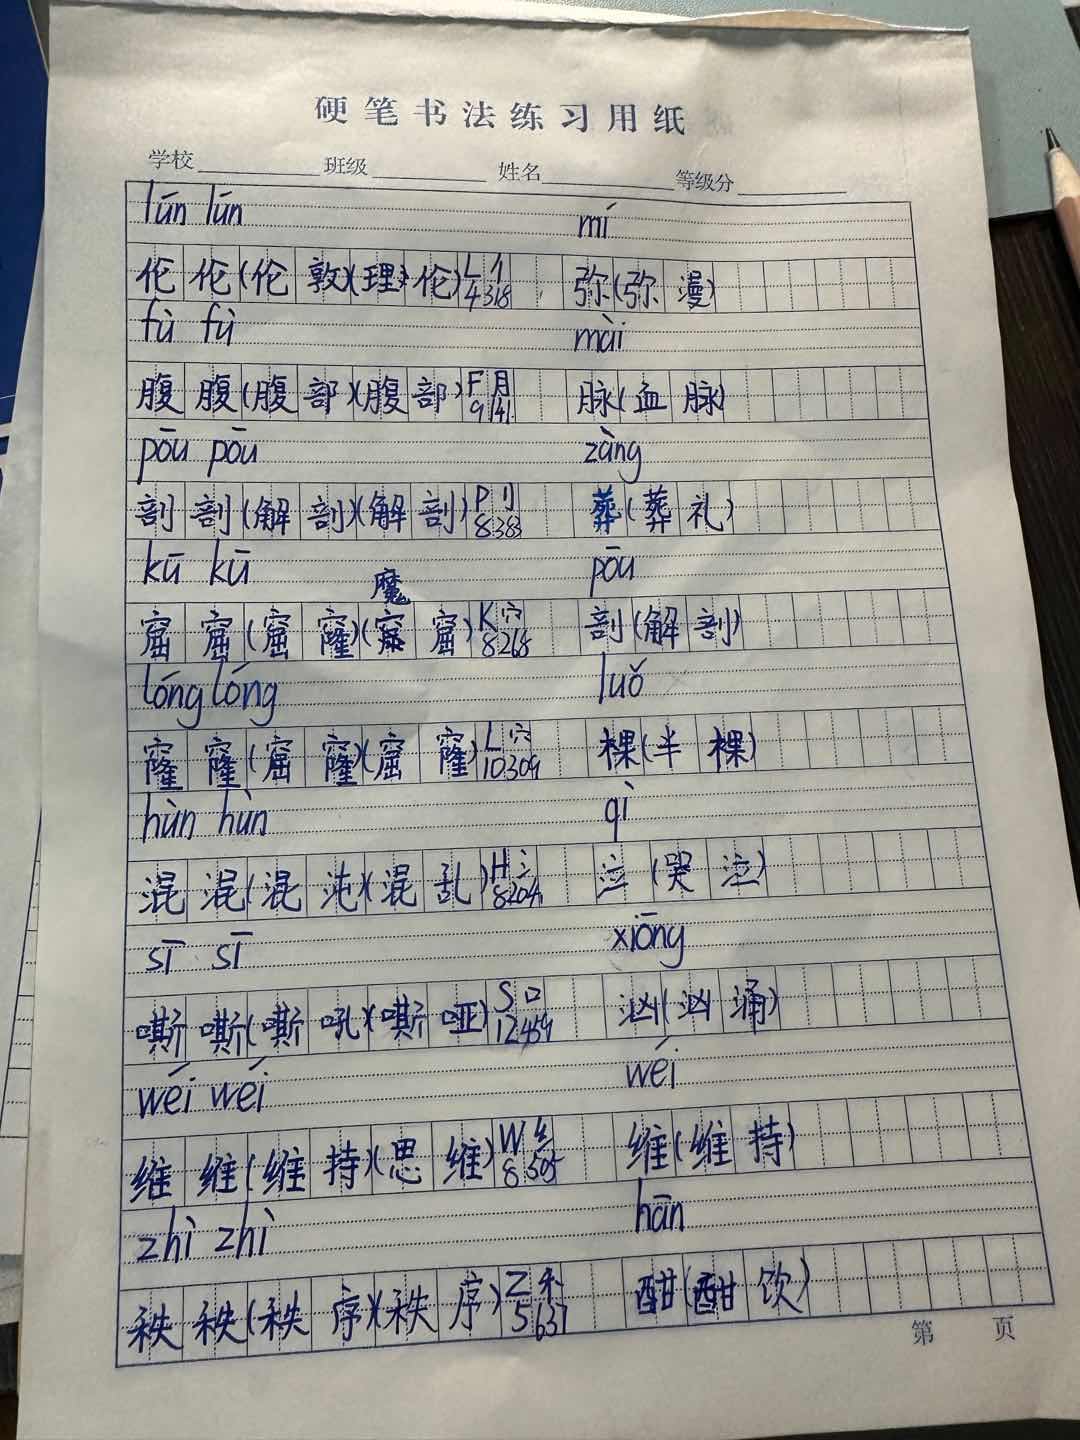 硬笔书法练习用纸
学校 班级 姓名 等级分
lún lún mí
伦 伦(伦敦)(理伦) L 亻 4 318 弥(弥漫)
fù fù mài
腹 腹(腹部)(腹部) F 月 9 141 脉(血脉)
pōu pōu zàng
剖 剖(解剖)(解剖) P 刂 8 383 葬(葬礼)
kū kū 魔 pōu
窟 窟(窟窿)(窟) K 穴 8 268 剖(解剖)
lóng lóng luǒ
窿 窿(窟窿)(窟窿) L 穴 10 309 裸(半裸)
hùn hùn qì
混 混(混沌)(混乱) H 氵 8 204 泣(哭泣)
sī sī xiōng
嘶 嘶(嘶吼)(嘶哑) S 口 12 459 汹(汹涌)
wéi wéi wéi
维 维(维持)(思维) W 纟 8 505 维(维持)
zhì zhì hān
秩 秩(秩序)(秩序) Z 禾 5 637 酣(酣饮)
第 页